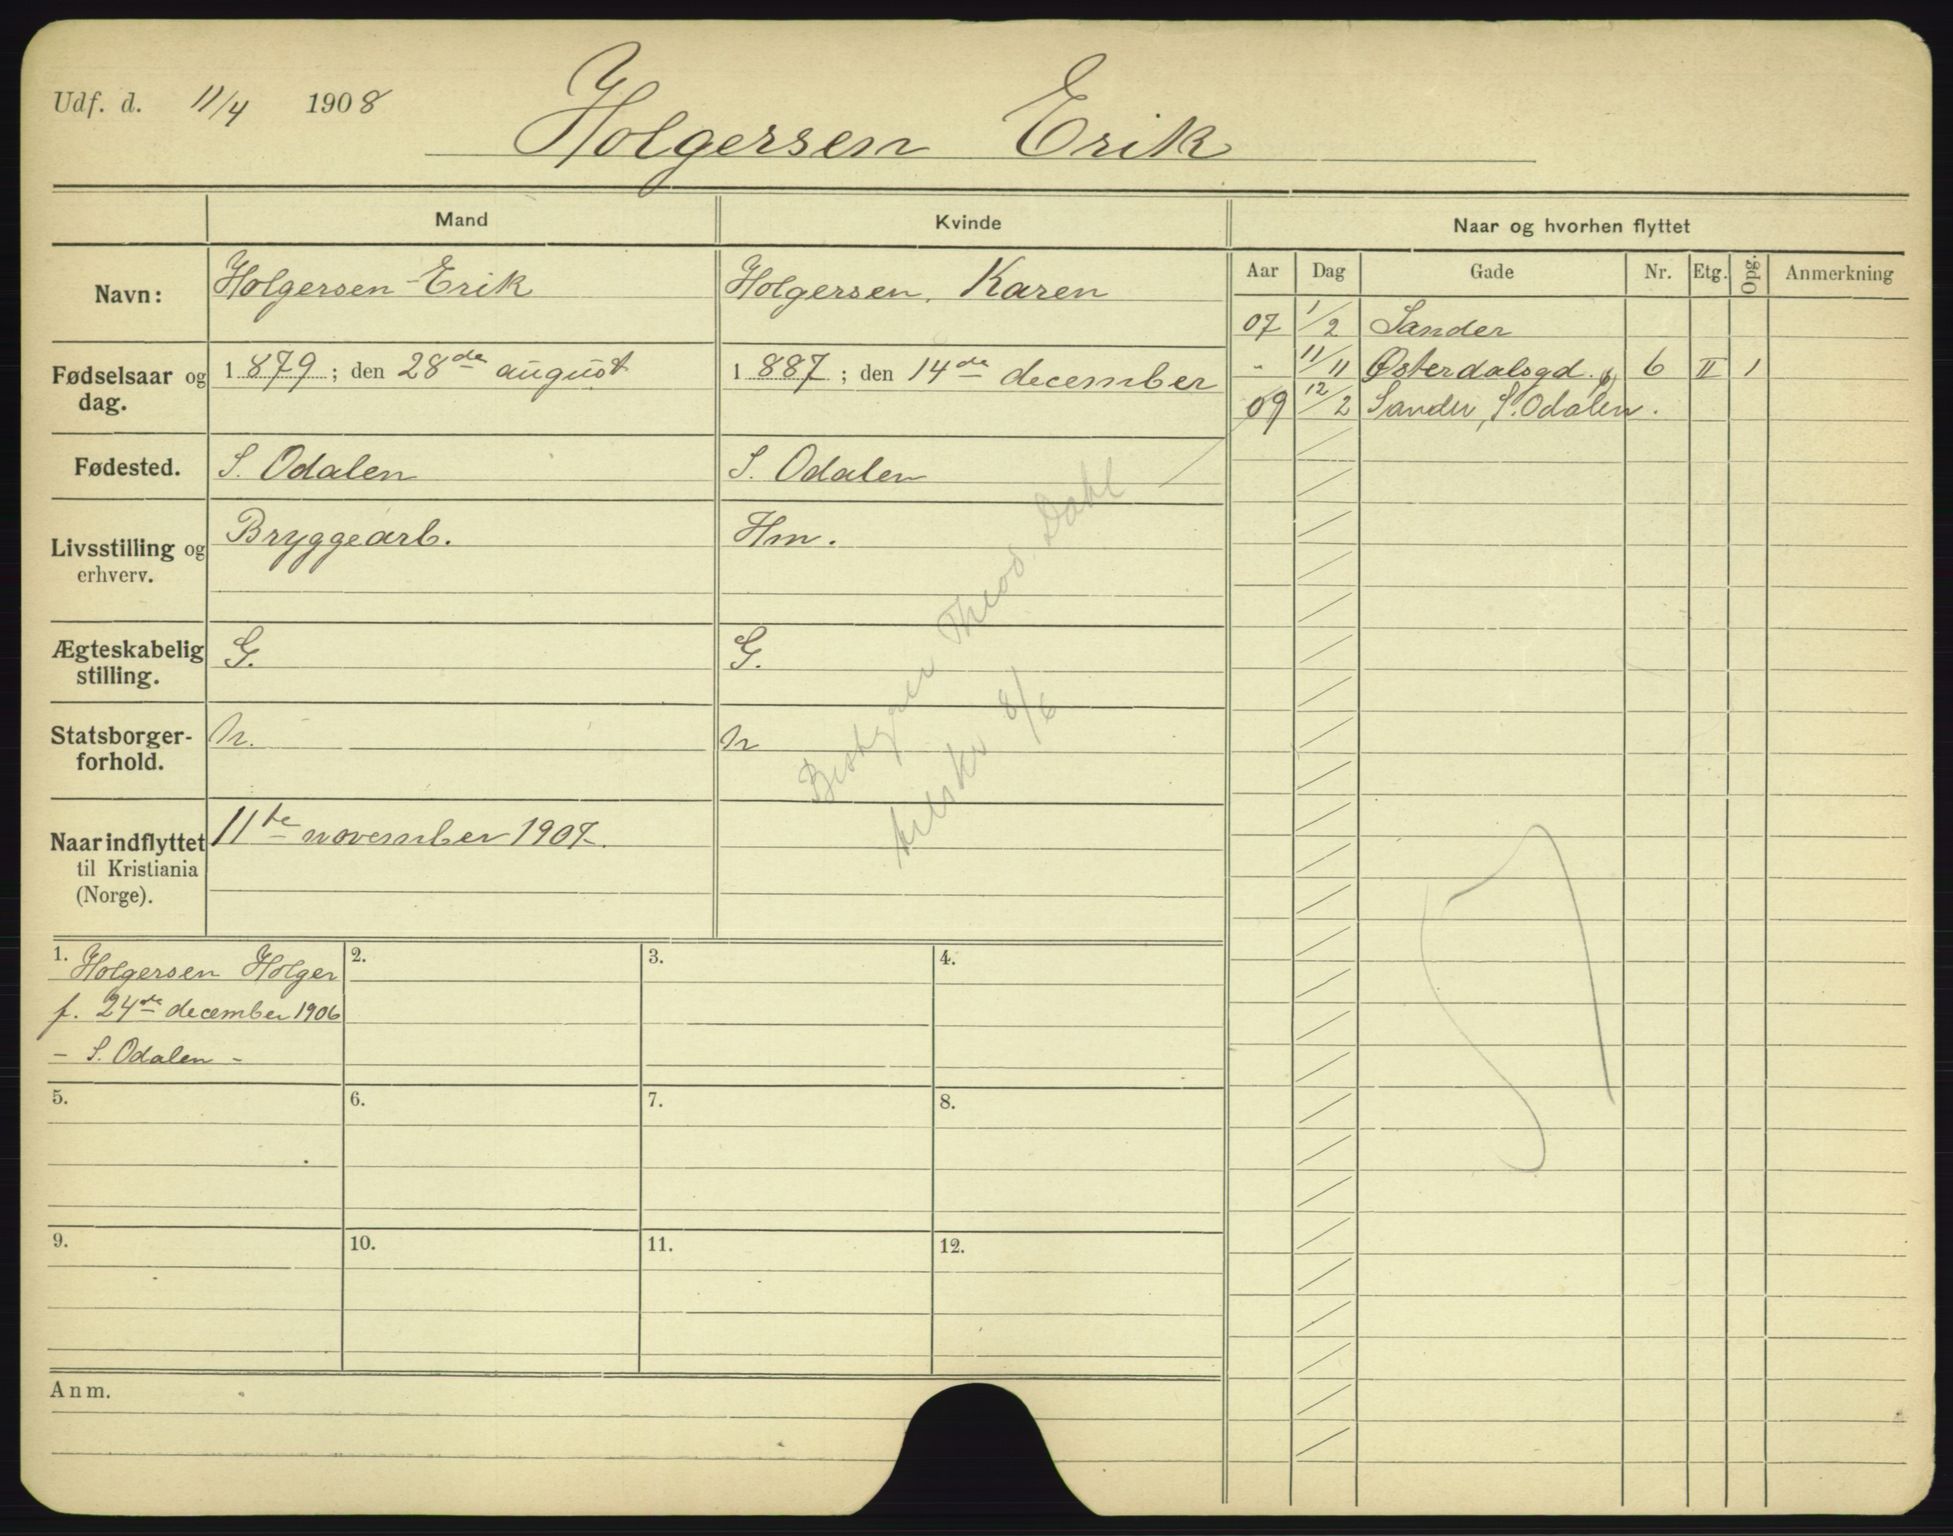 Udf. d. 11/4 1908
Holgersen Erik
Mand Kvinde
Navn: Holgersen Erik Holgersen, Karen
Fødselsaar og dag. 1879; den 28de august 1887; den 14de december
Fødested. S. Odalen S. Odalen
Livsstilling og erhverv. Bryggearb. Hm.
Ægteskabelig stilling. G. G.
Statsborgerforhold. n. n
Naar indflyttet til Kristiania (Norge). 11te november 1907.
Theod. Dahl
8/6
1. Holgersen Holger
f. 24de december 1906
- S. Odalen -
2.
3.
4.
5.
6.
7.
8.
9.
10.
11.
12.
Anm.
Naar og hvorhen flyttet
Aar Dag Gade Nr. Etg. Opg. Anmerkning
07 1/2 Sander
- 11/11 Østerdalsgd. 6 II 1
09 12/2 Sander, S. Odalen.